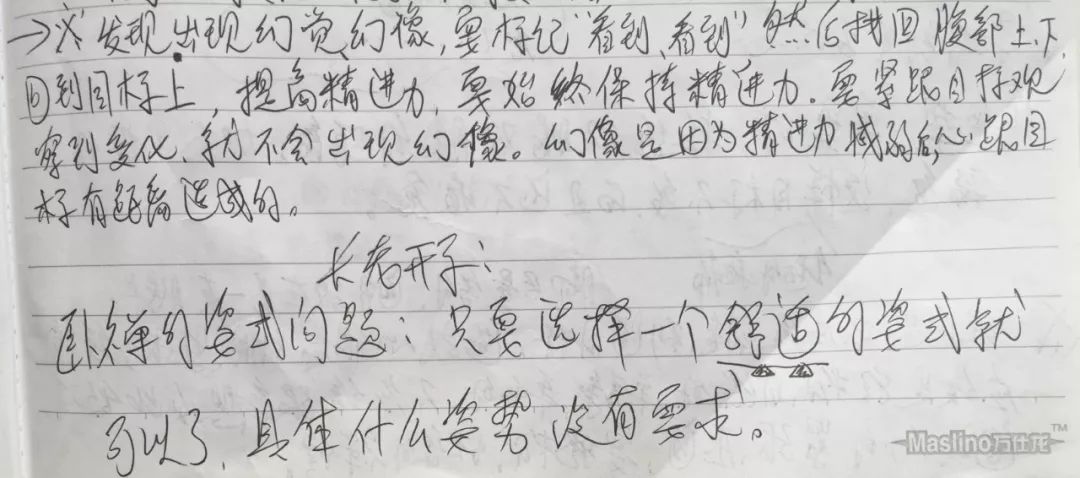 →※发现出现幻觉幻像,要标记“看到、看到”然后拽回腹部上下
回到目标上,提高精进力,要始终保持精进力.要紧跟目标观
察到变化,就不会出现幻像。幻像是因为精进力减弱后,心跟目
标有距离造成的。
长老开示:
卧禅的姿式问题:只要选择一个舒适的姿式就
可以了,具体什么姿势没有要求。
Maslino万仕龙™